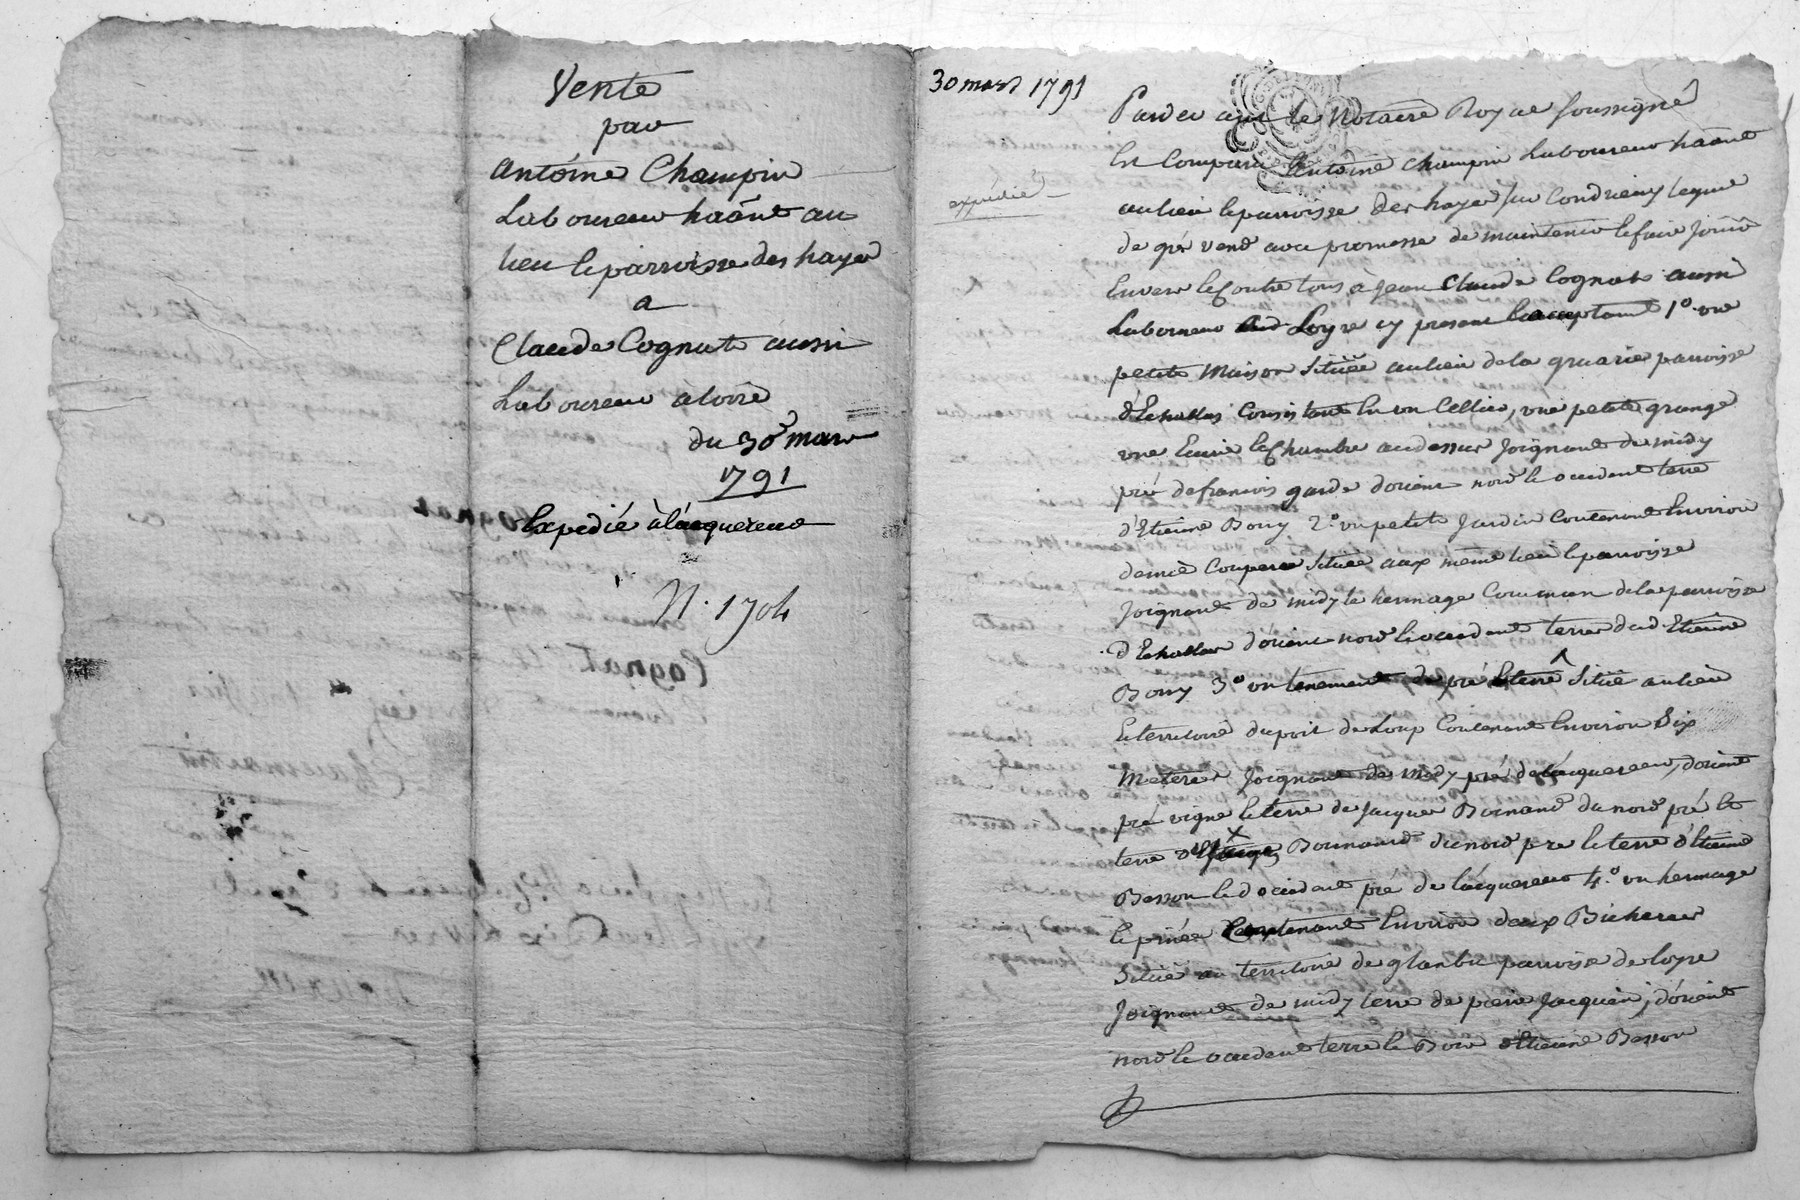 Vente
par
Antoine Champin
Laboureur hâant au
lieu & parroisse des hayes
a
Claude Cognat aussi
Laboureur à loire
du 30e mars
1791
Expedié à l'acquereur
N. 1704
30 mars 1791
expedié
Pardevant le Notaire Royal soussigné
Est Comparu Antoine Champin Laboureur hâant
au lieu & parroisse des hayes sur Condrieux lequel
de gré vend avec promesse de maintenir & faire jouir
Envers & Contre tous à Jean Claude Cognat aussi
Laboureur Loyre cy present & acceptant 1o une
petite Maison Située au lieu de la parroisse
d'Echallas Consistant En un Cellier, une petite grange
une Ecurie & Chambre au dessus Joignant de midy
pré de françois garde d'orient nord & occident terre
d'Etienne Bony 2o un petit Jardin Contenant Environ
demie Coupée Située aux même lieu & parroisse
Joignant de midy le hermage Commun de la parroisse
d'Echallas d'orient nord & occident terres dud Etienne
Bony 3o un tenement de pré & terre Situé au lieu
& territoire du poit du Loup Contenant Environ Six
Meterées Joignant de midy pré de l'acquereur, d'orient
pré vigne & terre de Jacques Bornand du nord pré &
terre Bornand du nord pré & terre d'Etienne
Besson & d'occident pré de l'acquereur 4o un hermage
& pinée Contenant Environ deux Bicherées
Situé au territoire de parroisse de Loyre
Joignant de midy terre de pierre Jacquier; d'orient
nord & occident terre & Bois d'Etienne Besson